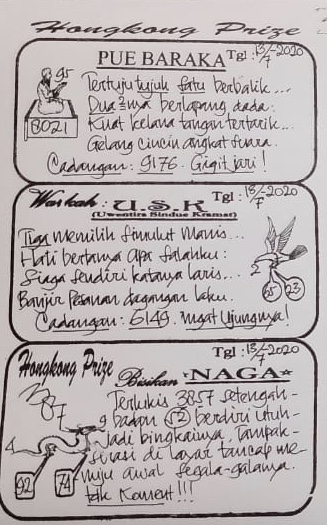 Hongkong Prize
PUE BARAKA Tgl : 13/7-2020
95
8021
Tertuju tujuh satu berbalik...
Dua²nya berlapang dada.
Kuat kelana tangan tertarik...
Gelang cincin angkat suara.
Cadangan : 9176. Gigit jari!
Warkah : U.S.K Tgl : 13/7-2020
(Uwentira Sindue Kramat)
Tiga memilih simulut manis...
Hati bertanya apa salahku :
Siaga sendiri katanya laris...
Banjir pesanan dagangan laku.
Cadangan : 6149. Ingat Ujungnya!
2
65 23
Hongkong Prize Tgl : 13/7-2020
Bisikan NAGA
Terlukis 3857 setengah-
badan 52 berdiri utuh-
jadi bingkainya. Tampak-
sirasi di layar tancap me-
nuju awal segala-galanya.
Koment!!!
4
9
92 74